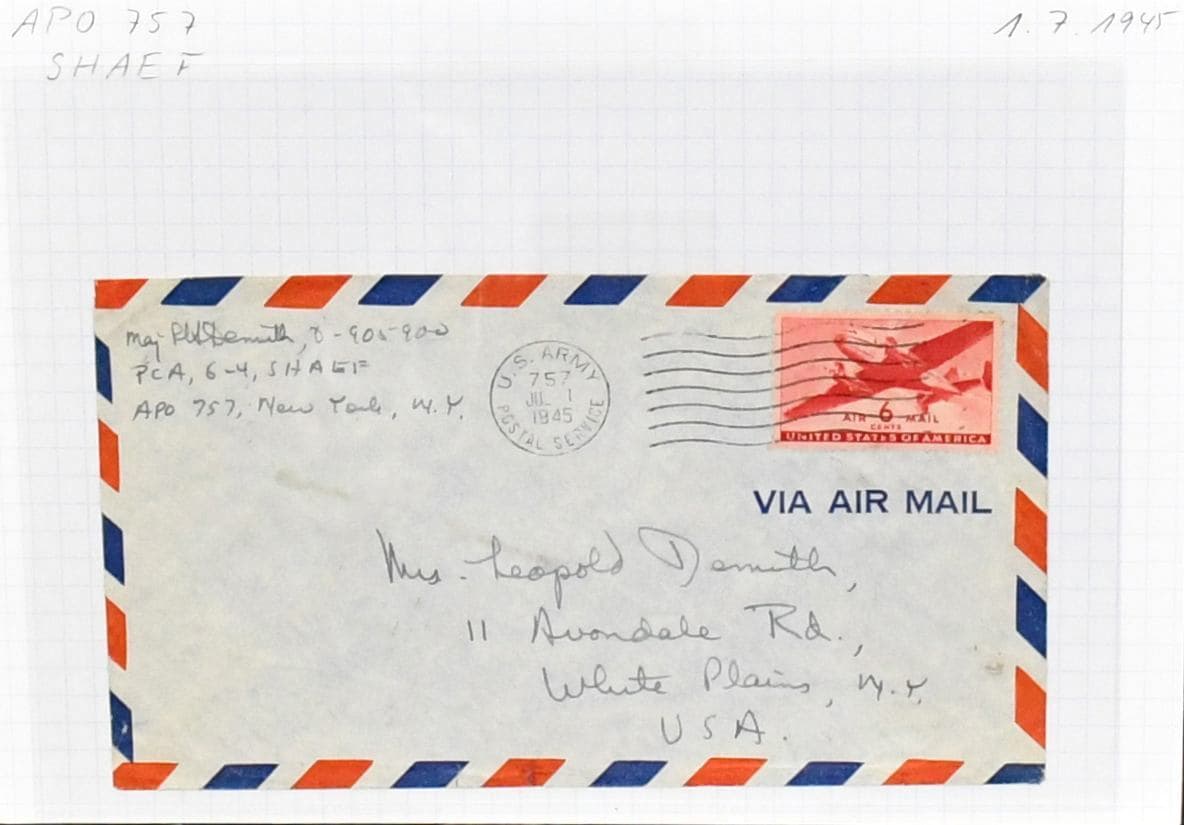 APO 757
SHAEF
1.7.1945
Maj Demuth, O-905900
PCA, G-4, SHAEF
APO 757, New York, N.Y.
U.S. ARMY
757
JUL 1
1945
POSTAL SERVICE
AIR 6 MAIL
CENTS
UNITED STATES OF AMERICA
VIA AIR MAIL
Mrs. Leopold Demuth,
11 Avondale Rd.,
White Plains, N.Y.
USA.